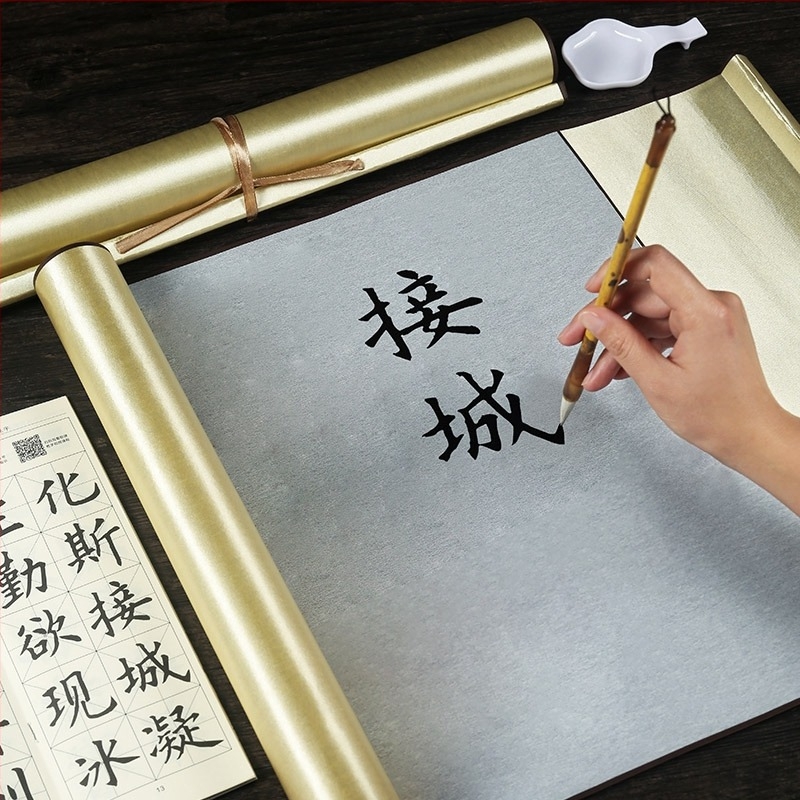 接
城
化
斯
接
城
凝
勤
欲
现
冰
13